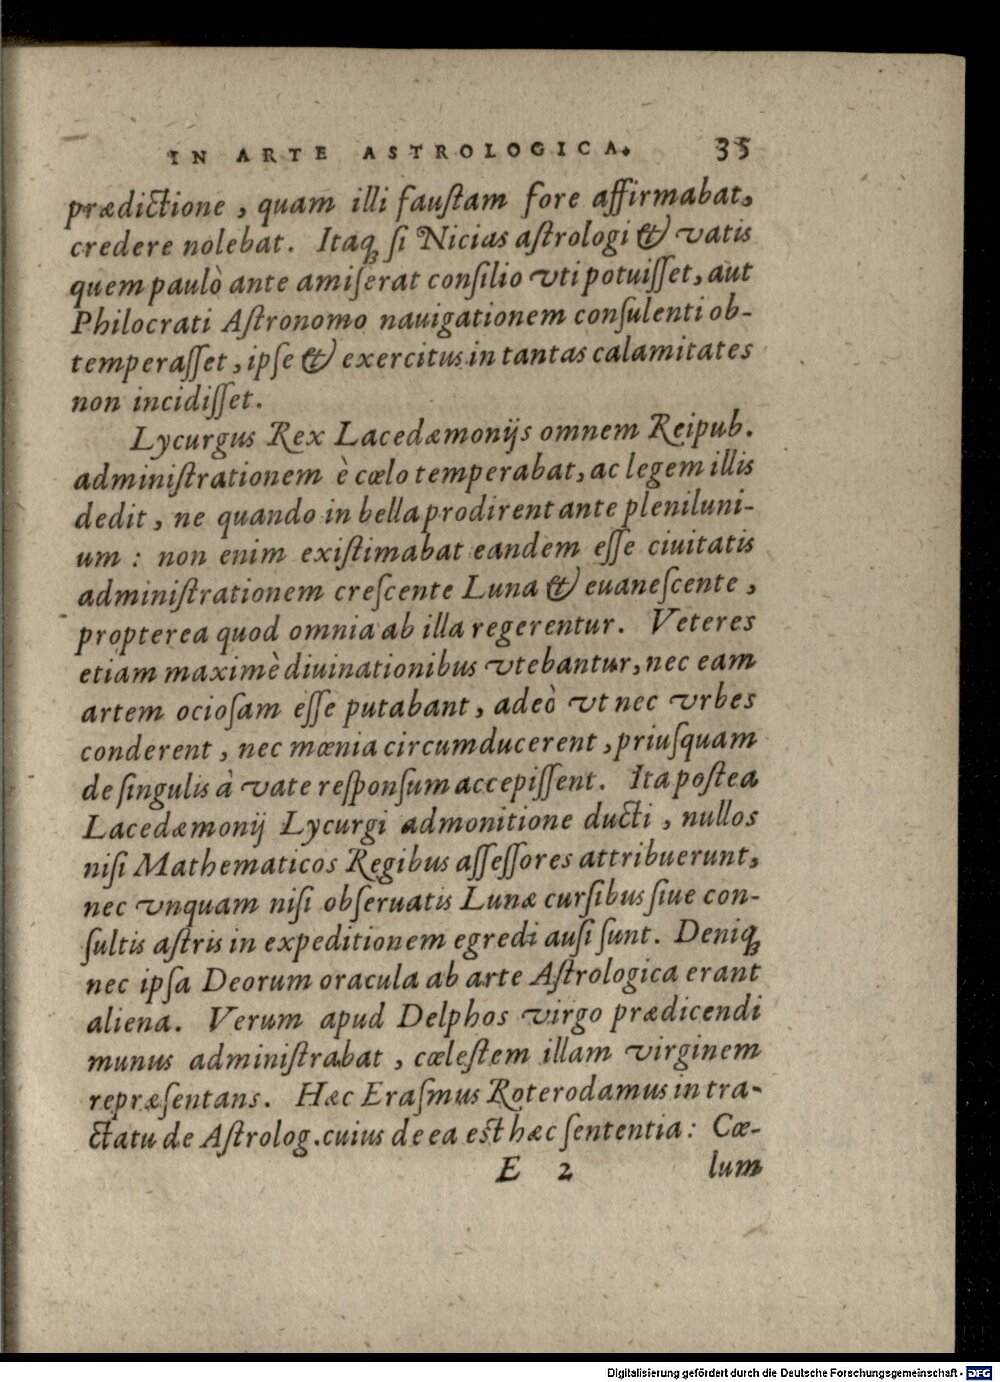 IN ARTE ASTROLOGICA. 35
prædictione, quam illi fauſtam fore affirmabat,
credere nolebat. Itaqꝫ ſi Nicias aſtrologi & vatis
quem paulò ante amiſerat conſilio vti potuiſſet, aut
Philocrati Aſtronomo nauigationem conſulenti ob-
temperaſſet, ipſe & exercitus in tantas calamitates
non incidiſſet.
Lycurgus Rex Lacedæmonijs omnem Reipub.
adminiſtrationem è cœlo temperabat, ac legem illis
dedit, ne quando in bella prodirent ante pleniluni-
um : non enim exiſtimabat eandem eſſe ciuitatis
adminiſtrationem creſcente Luna & euaneſcente,
propterea quod omnia ab illa regerentur. Veteres
etiam maximè diuinationibus vtebantur, nec eam
artem ocioſam eſſe putabant, adeò vt nec vrbes
conderent, nec mœnia circumducerent, priuſquam
de ſingulis à vate reſponſum accepiſſent. Ita poſtea
Lacedæmonij Lycurgi admonitione ducti, nullos
niſi Mathematicos Regibus aſſeſſores attribuerunt,
nec vnquam niſi obſeruatis Lunæ curſibus ſiue con-
ſultis aſtris in expeditionem egredi auſi ſunt. Deniqꝫ
nec ipſa Deorum oracula ab arte Aſtrologica erant
aliena. Verum apud Delphos virgo prædicendi
munus adminiſtrabat, cœleſtem illam virginem
repræſentans. Hæc Eraſmus Roterodamus in tra-
ctatu de Aſtrolog. cuius de ea eſt hæc ſententia: Cœ-
E 2 lum
Digitalisierung gefördert durch die Deutsche Forschungsgemeinschaft - DFG